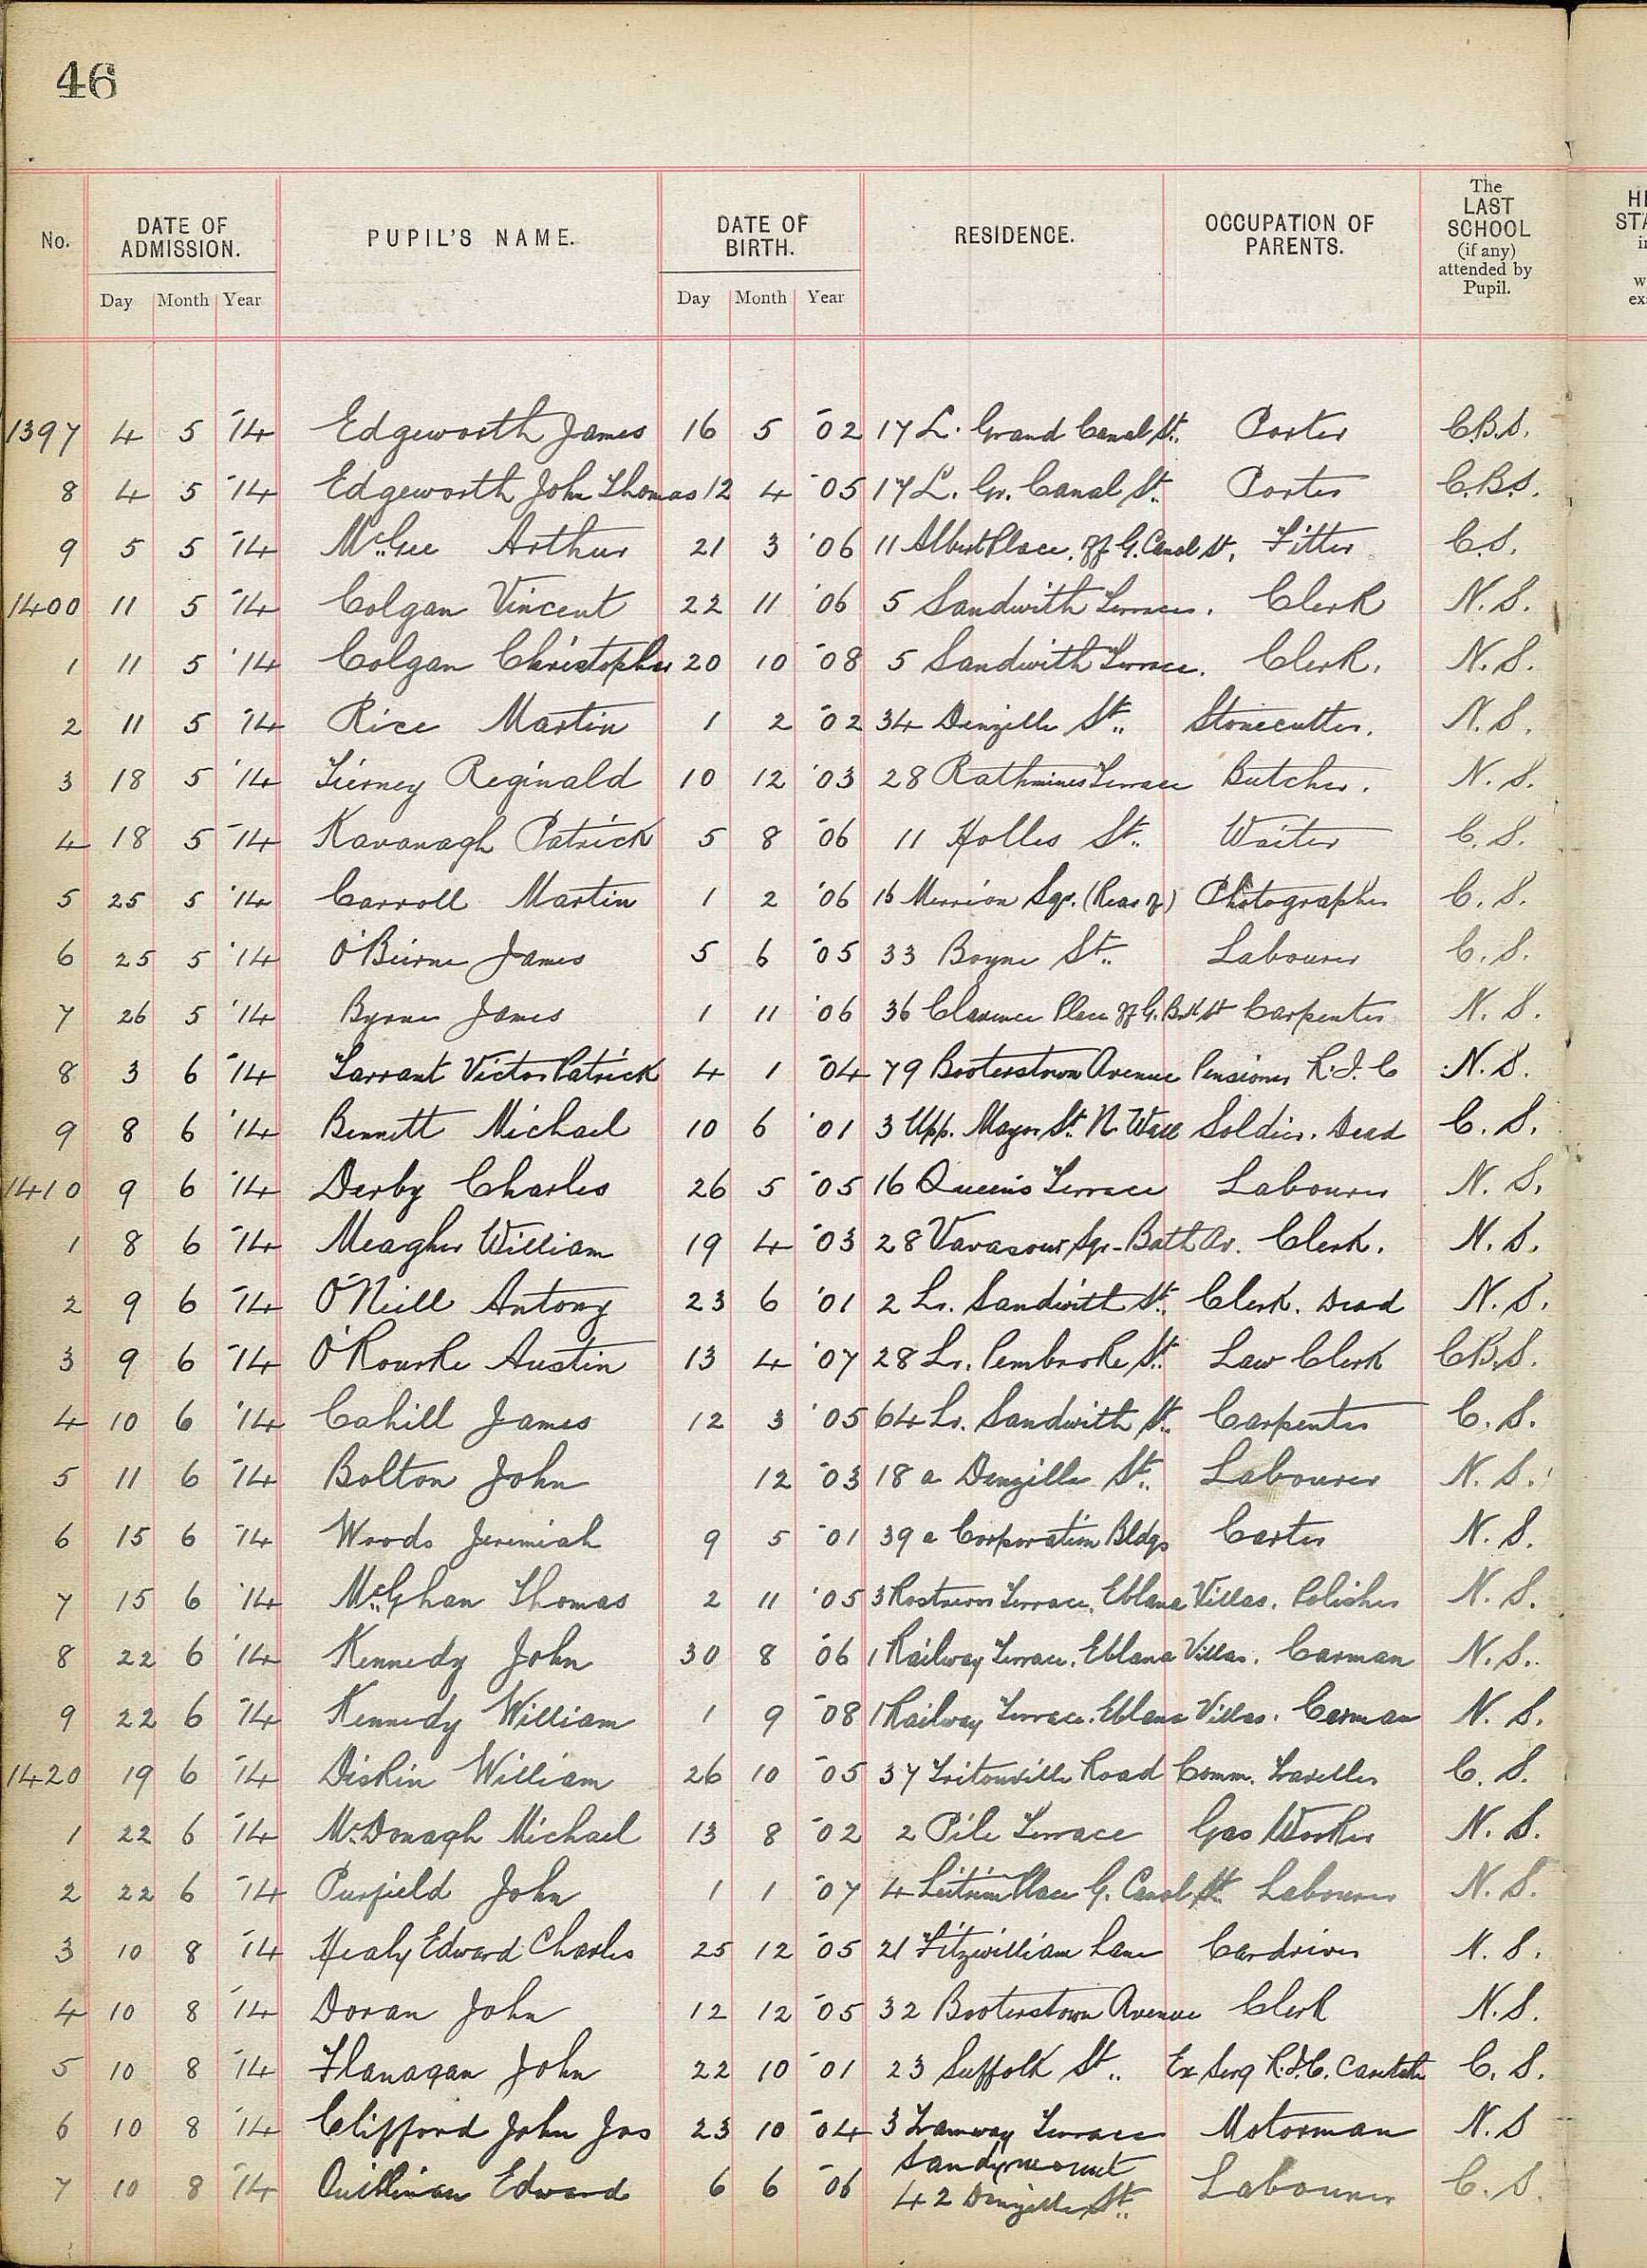 46
No. DATE OF ADMISSION. PUPIL'S NAME. DATE OF BIRTH. RESIDENCE. OCCUPATION OF PARENTS. The LAST SCHOOL (if any) attended by Pupil.
Day Month Year Day Month Year
1397 4 5 '14 Edgeworth James 16 5 '02 17 L. Grand Canal St. Porter C.B.S.
8 4 5 '14 Edgeworth John Thomas 12 4 '05 17 L. Gr. Canal St. Porter C.B.S.
9 5 5 '14 McGee Arthur 21 3 '06 11 Albert Place. off G. Canal St. Fitter C.S.
1400 11 5 '14 Colgan Vincent 22 11 '06 5 Sandwith Terrace. Clerk N.S.
1 11 5 '14 Colgan Christopher 20 10 '08 5 Sandwith Terrace. Clerk. N.S.
2 11 5 '14 Rice Martin 1 2 '02 34 Denzille St. Stonecutter. N.S.
3 18 5 '14 Tierney Reginald 10 12 '03 28 Rathmines Terrace Butcher. N.S.
4 18 5 '14 Kavanagh Patrick 5 8 '06 11 Holles St. Waiter C.S.
5 25 5 '14 Carroll Martin 1 2 '06 Merrion Sqr. (Rear of) Photographer C.S.
6 25 5 '14 O'Beirne James 5 6 '05 33 Boyne St. Labourer C.S.
7 26 5 '14 Byrne James 1 11 '06 36 Clarence Place off G. St Carpenter N.S.
8 3 6 '14 Tarrant Victor Patrick 4 1 '04 79 Booterstown Avenue Pensioner R.I.C N.S.
9 8 6 '14 Bennett Michael 10 6 '01 3 Upp. Mayor St. N. Wall Soldier. Dead C.S.
1410 9 6 '14 Derby Charles 26 5 '05 16 Queen's Terrace Labourer N.S.
1 8 6 '14 Meagher William 19 4 '03 28 Vavasour Sqr. Bath Av. Clerk. N.S.
2 9 6 '14 O'Neill Antony 23 6 '01 2 Lr. Sandwith St. Clerk. Dead N.S.
3 9 6 '14 O'Rourke Austin 13 4 '07 28 Lr. Pembroke St. Law Clerk C.B.S.
4 10 6 '14 Cahill James 12 3 '05 64 Lr. Sandwith St. Carpenter C.S.
5 11 6 '14 Bolton John 12 '03 18 a Denzille St. Labourer N.S.
6 15 6 '14 Woods Jeremiah 9 5 '01 39 a Corporation Bldgs Carter N.S.
7 15 6 '14 McGhan Thomas 2 11 '05 3 Rostrevor Terrace, Eblana Villas. Polisher N.S.
8 22 6 '14 Kennedy John 30 8 '06 1 Railway Terrace. Eblana Villas. Carman N.S.
9 22 6 '14 Kennedy William 1 9 '08 1 Railway Terrace. Eblana Villas. Carman N.S.
1420 19 6 '14 Diskin William 26 10 '05 37 Tritonville Road Comm. Traveller C.S.
1 22 6 '14 McDonagh Michael 13 8 '02 2 Pile Terrace Gas Worker N.S.
2 22 6 '14 Purfield John 1 1 '07 4 Leitrim Place G. Canal St. Labourer N.S.
3 10 8 '14 Healy Edward Charles 25 12 '05 21 Fitzwilliam Lane Cardriver N.S.
4 10 8 '14 Doran John 12 12 '05 32 Booterstown Avenue Clerk N.S.
5 10 8 '14 Flanagan John 22 10 '01 23 Suffolk St. Ex Serg R.I.C. C.S.
6 10 8 '14 Clifford John Jos 23 10 '04 3 Tramway Terrace Motorman N.S
Sandymount
7 10 8 '14 Quillinan Edward 6 6 '06 42 Denzille St. Labourer C.S.